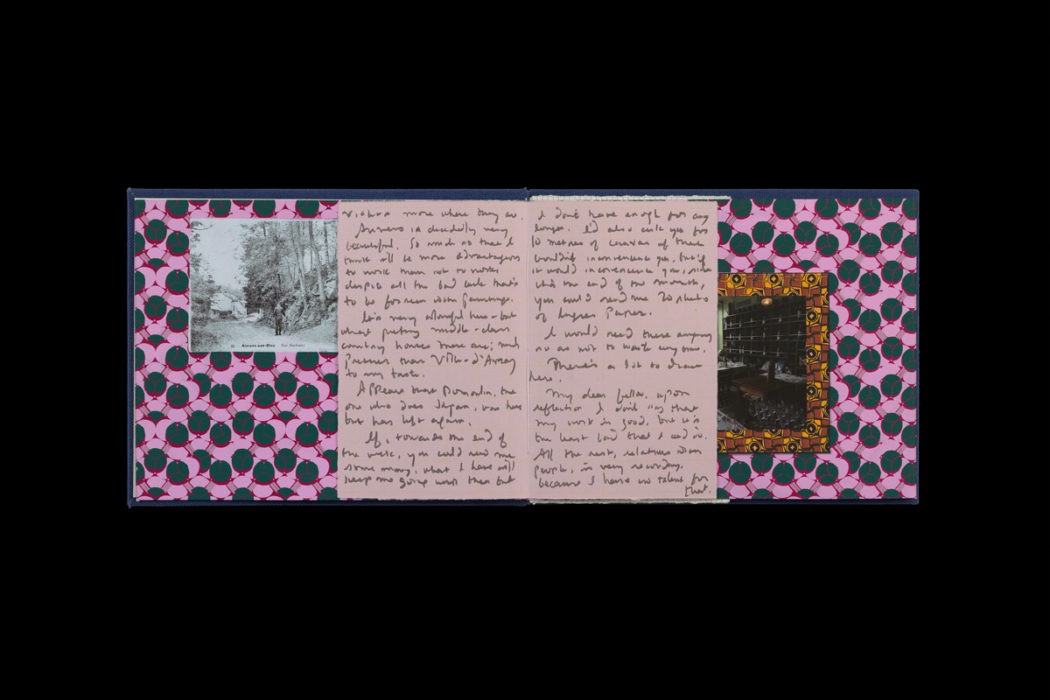 more where they are.
Auvers is decidedly very
beautiful. So much so that I
think will be more advantageous
to work than not to work
despite all the bad luck that's
to be foreseen with paintings.
It's very colourful here - but
what pretty middle-class
country houses there are; much
prettier than Ville-d'Avray
to my taste.
Appears that Dumoulin, the
one who does Japan, was here
but has left again.
If, towards the end of
the week, you could send me
some money, what I have will
keep me going until then but
I don't have enough for any
longer. I'd also ask you for
10 metres of canvas if these
wouldn't inconvenience you, but if
it would inconvenience you, since
it's the end of the month,
you could send me 20 sheets
of Ingres Paper.
I would need these anyway
so as not to waste any time.
There's a lot to draw
here.
My dear fellow, upon
reflection I don't say that
my work is good, but it's
the least bad that I can do.
All the rest, relations with
people, is very secondary,
because I have no talent for
that.
Auvers-sur-Oise